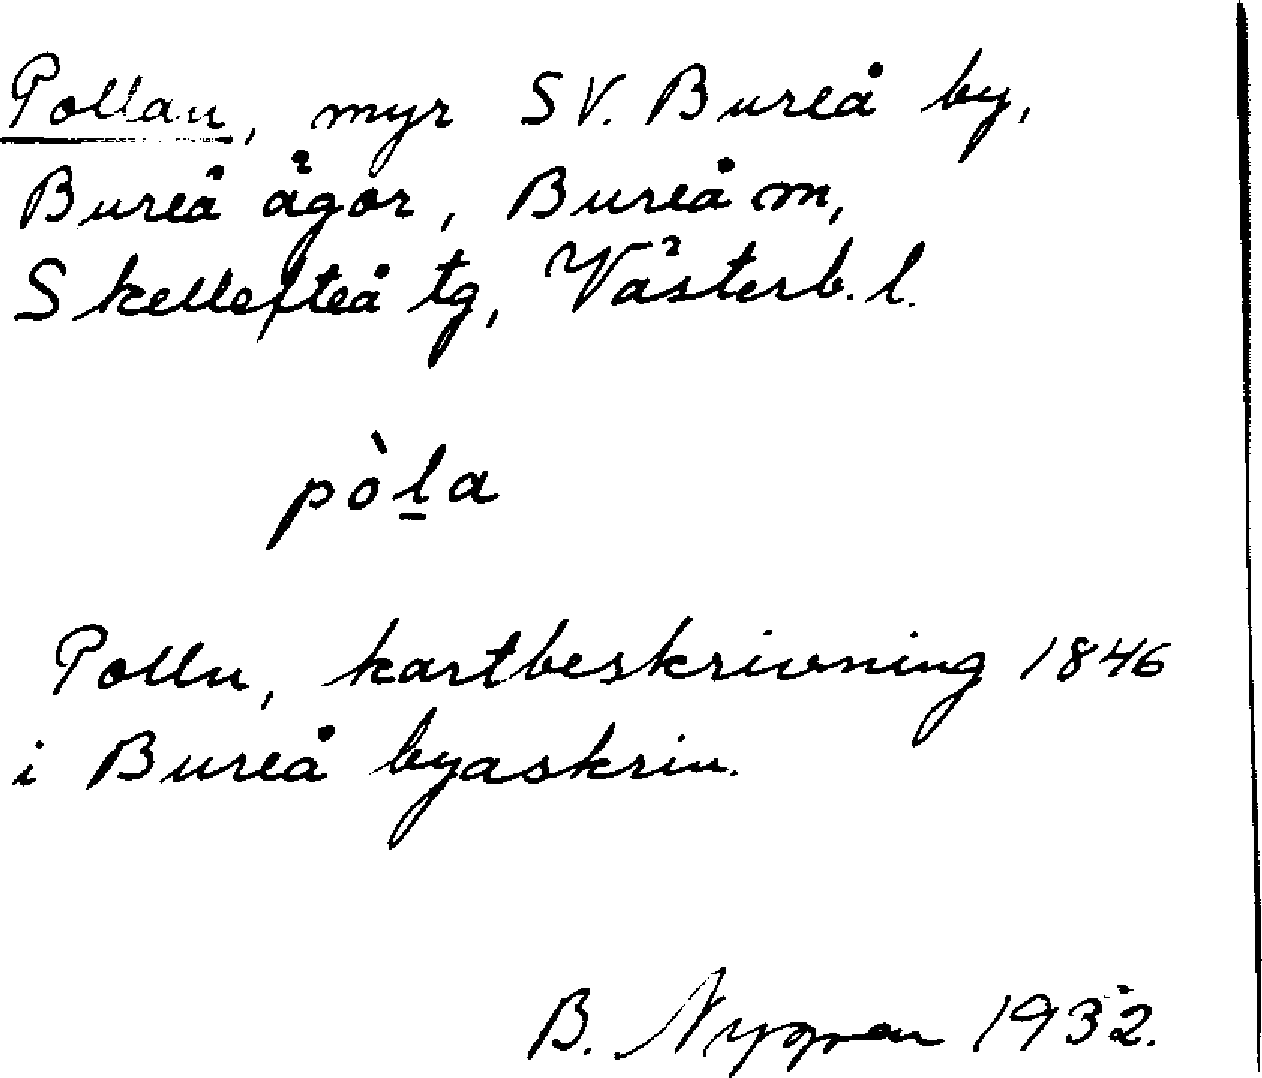 Pollan, myr SV. Bureå by,
Bureå ägor, Bureå m,
Skellefteå tg, Västerb. l.
pòl̲a
Polln, kartbeskrivning 1846
i Bureå byaskrin.
B. Nygren 1932.